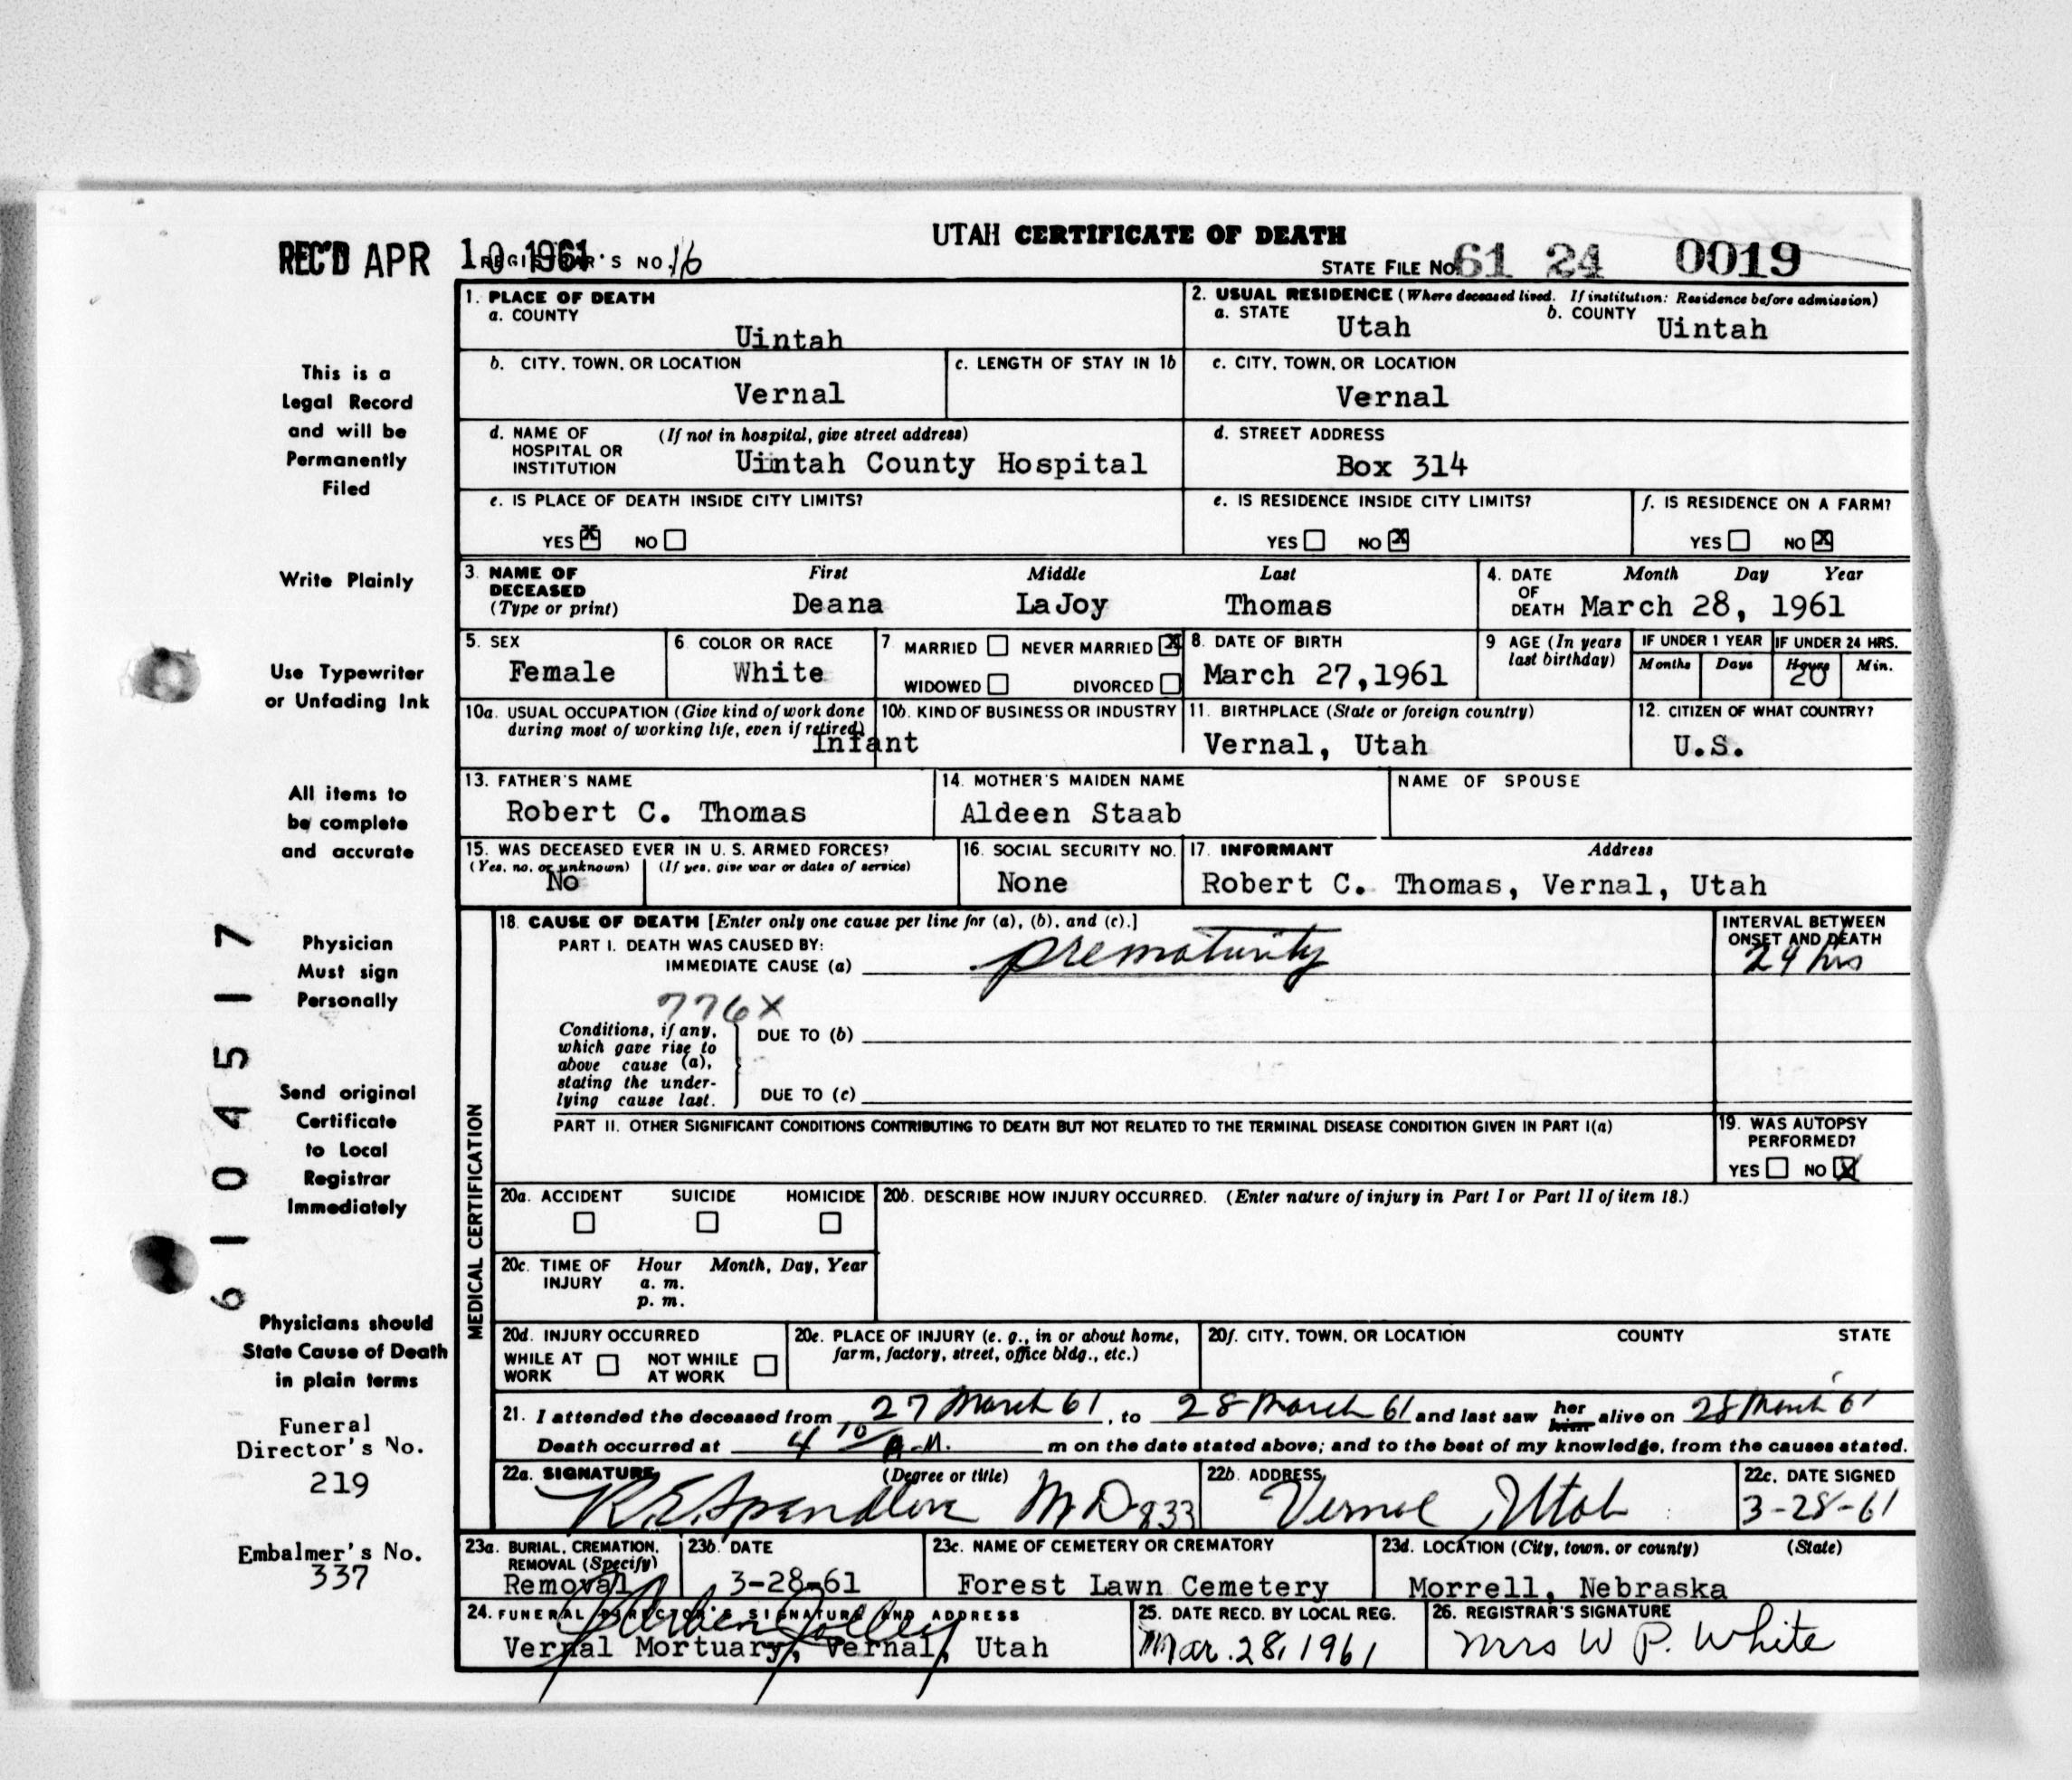 UTAH CERTIFICATE OF DEATH
REC'D APR 10 1961 REGISTRAR'S NO. 16
STATE FILE NO. 61 24 0019
1. PLACE OF DEATH
a. COUNTY
Uintah
2. USUAL RESIDENCE (Where deceased lived. If institution: Residence before admission)
a. STATE Utah b. COUNTY Uintah
b. CITY, TOWN, OR LOCATION
Vernal
c. LENGTH OF STAY IN 1b
c. CITY, TOWN, OR LOCATION
Vernal
d. NAME OF HOSPITAL OR INSTITUTION (If not in hospital, give street address)
Uintah County Hospital
d. STREET ADDRESS
Box 314
e. IS PLACE OF DEATH INSIDE CITY LIMITS?
YES X NO
e. IS RESIDENCE INSIDE CITY LIMITS?
YES NO X
f. IS RESIDENCE ON A FARM?
YES NO X
3. NAME OF DECEASED (Type or print)
First Middle Last
Deana LaJoy Thomas
4. DATE OF DEATH Month Day Year
March 28, 1961
5. SEX
Female
6 COLOR OR RACE
White
7 MARRIED NEVER MARRIED X
WIDOWED DIVORCED
8. DATE OF BIRTH
March 27,1961
9 AGE (In years last birthday)
IF UNDER 1 YEAR
Months Days
IF UNDER 24 HRS.
Hours Min.
20
10a. USUAL OCCUPATION (Give kind of work done during most of working life, even if retired)
Infant
10b. KIND OF BUSINESS OR INDUSTRY
11. BIRTHPLACE (State or foreign country)
Vernal, Utah
12. CITIZEN OF WHAT COUNTRY?
U.S.
13. FATHER'S NAME
Robert C. Thomas
14. MOTHER'S MAIDEN NAME
Aldeen Staab
NAME OF SPOUSE
15. WAS DECEASED EVER IN U. S. ARMED FORCES?
(Yes, no, or unknown) (If yes, give war or dates of service)
No
16. SOCIAL SECURITY NO.
None
17. INFORMANT Address
Robert C. Thomas, Vernal, Utah
MEDICAL CERTIFICATION
18. CAUSE OF DEATH [Enter only one cause per line for (a), (b), and (c).]
PART I. DEATH WAS CAUSED BY:
IMMEDIATE CAUSE (a) prematurity
INTERVAL BETWEEN ONSET AND DEATH
24 hrs
776X
Conditions, if any, which gave rise to above cause (a), stating the underlying cause last.
DUE TO (b)
DUE TO (c)
PART II. OTHER SIGNIFICANT CONDITIONS CONTRIBUTING TO DEATH BUT NOT RELATED TO THE TERMINAL DISEASE CONDITION GIVEN IN PART I(a)
19. WAS AUTOPSY PERFORMED?
YES NO X
20a. ACCIDENT SUICIDE HOMICIDE
20b. DESCRIBE HOW INJURY OCCURRED. (Enter nature of injury in Part I or Part II of item 18.)
20c. TIME OF INJURY Hour Month, Day, Year
a. m.
p. m.
20d. INJURY OCCURRED
WHILE AT WORK NOT WHILE AT WORK
20e. PLACE OF INJURY (e. g., in or about home, farm, factory, street, office bldg., etc.)
20f. CITY, TOWN, OR LOCATION COUNTY STATE
21. I attended the deceased from 27 March 61, to 28 March 61 and last saw her him alive on 28 March 61
Death occurred at 4 10 A.M. m on the date stated above; and to the best of my knowledge, from the causes stated.
22a. SIGNATURE (Degree or title)
R.E. Spendlove M D 833
22b. ADDRESS
Vernal, Utah
22c. DATE SIGNED
3-28-61
23a. BURIAL, CREMATION, REMOVAL (Specify)
Removal
23b. DATE
3-28-61
23c. NAME OF CEMETERY OR CREMATORY
Forest Lawn Cemetery
23d. LOCATION (City, town, or county) (State)
Morrell, Nebraska
24. FUNERAL DIRECTOR'S SIGNATURE AND ADDRESS
Jolley
Vernal Mortuary, Vernal, Utah
25. DATE RECD. BY LOCAL REG.
Mar. 28, 1961
26. REGISTRAR'S SIGNATURE
Mrs W P. White
This is a
Legal Record
and will be
Permanently
Filed
Write Plainly
Use Typewriter
or Unfading Ink
All items to
be complete
and accurate
Physician
Must sign
Personally
Send original
Certificate
to Local
Registrar
Immediately
Physicians should
State Cause of Death
in plain terms
Funeral
Director's No.
219
Embalmer's No.
337
6104517